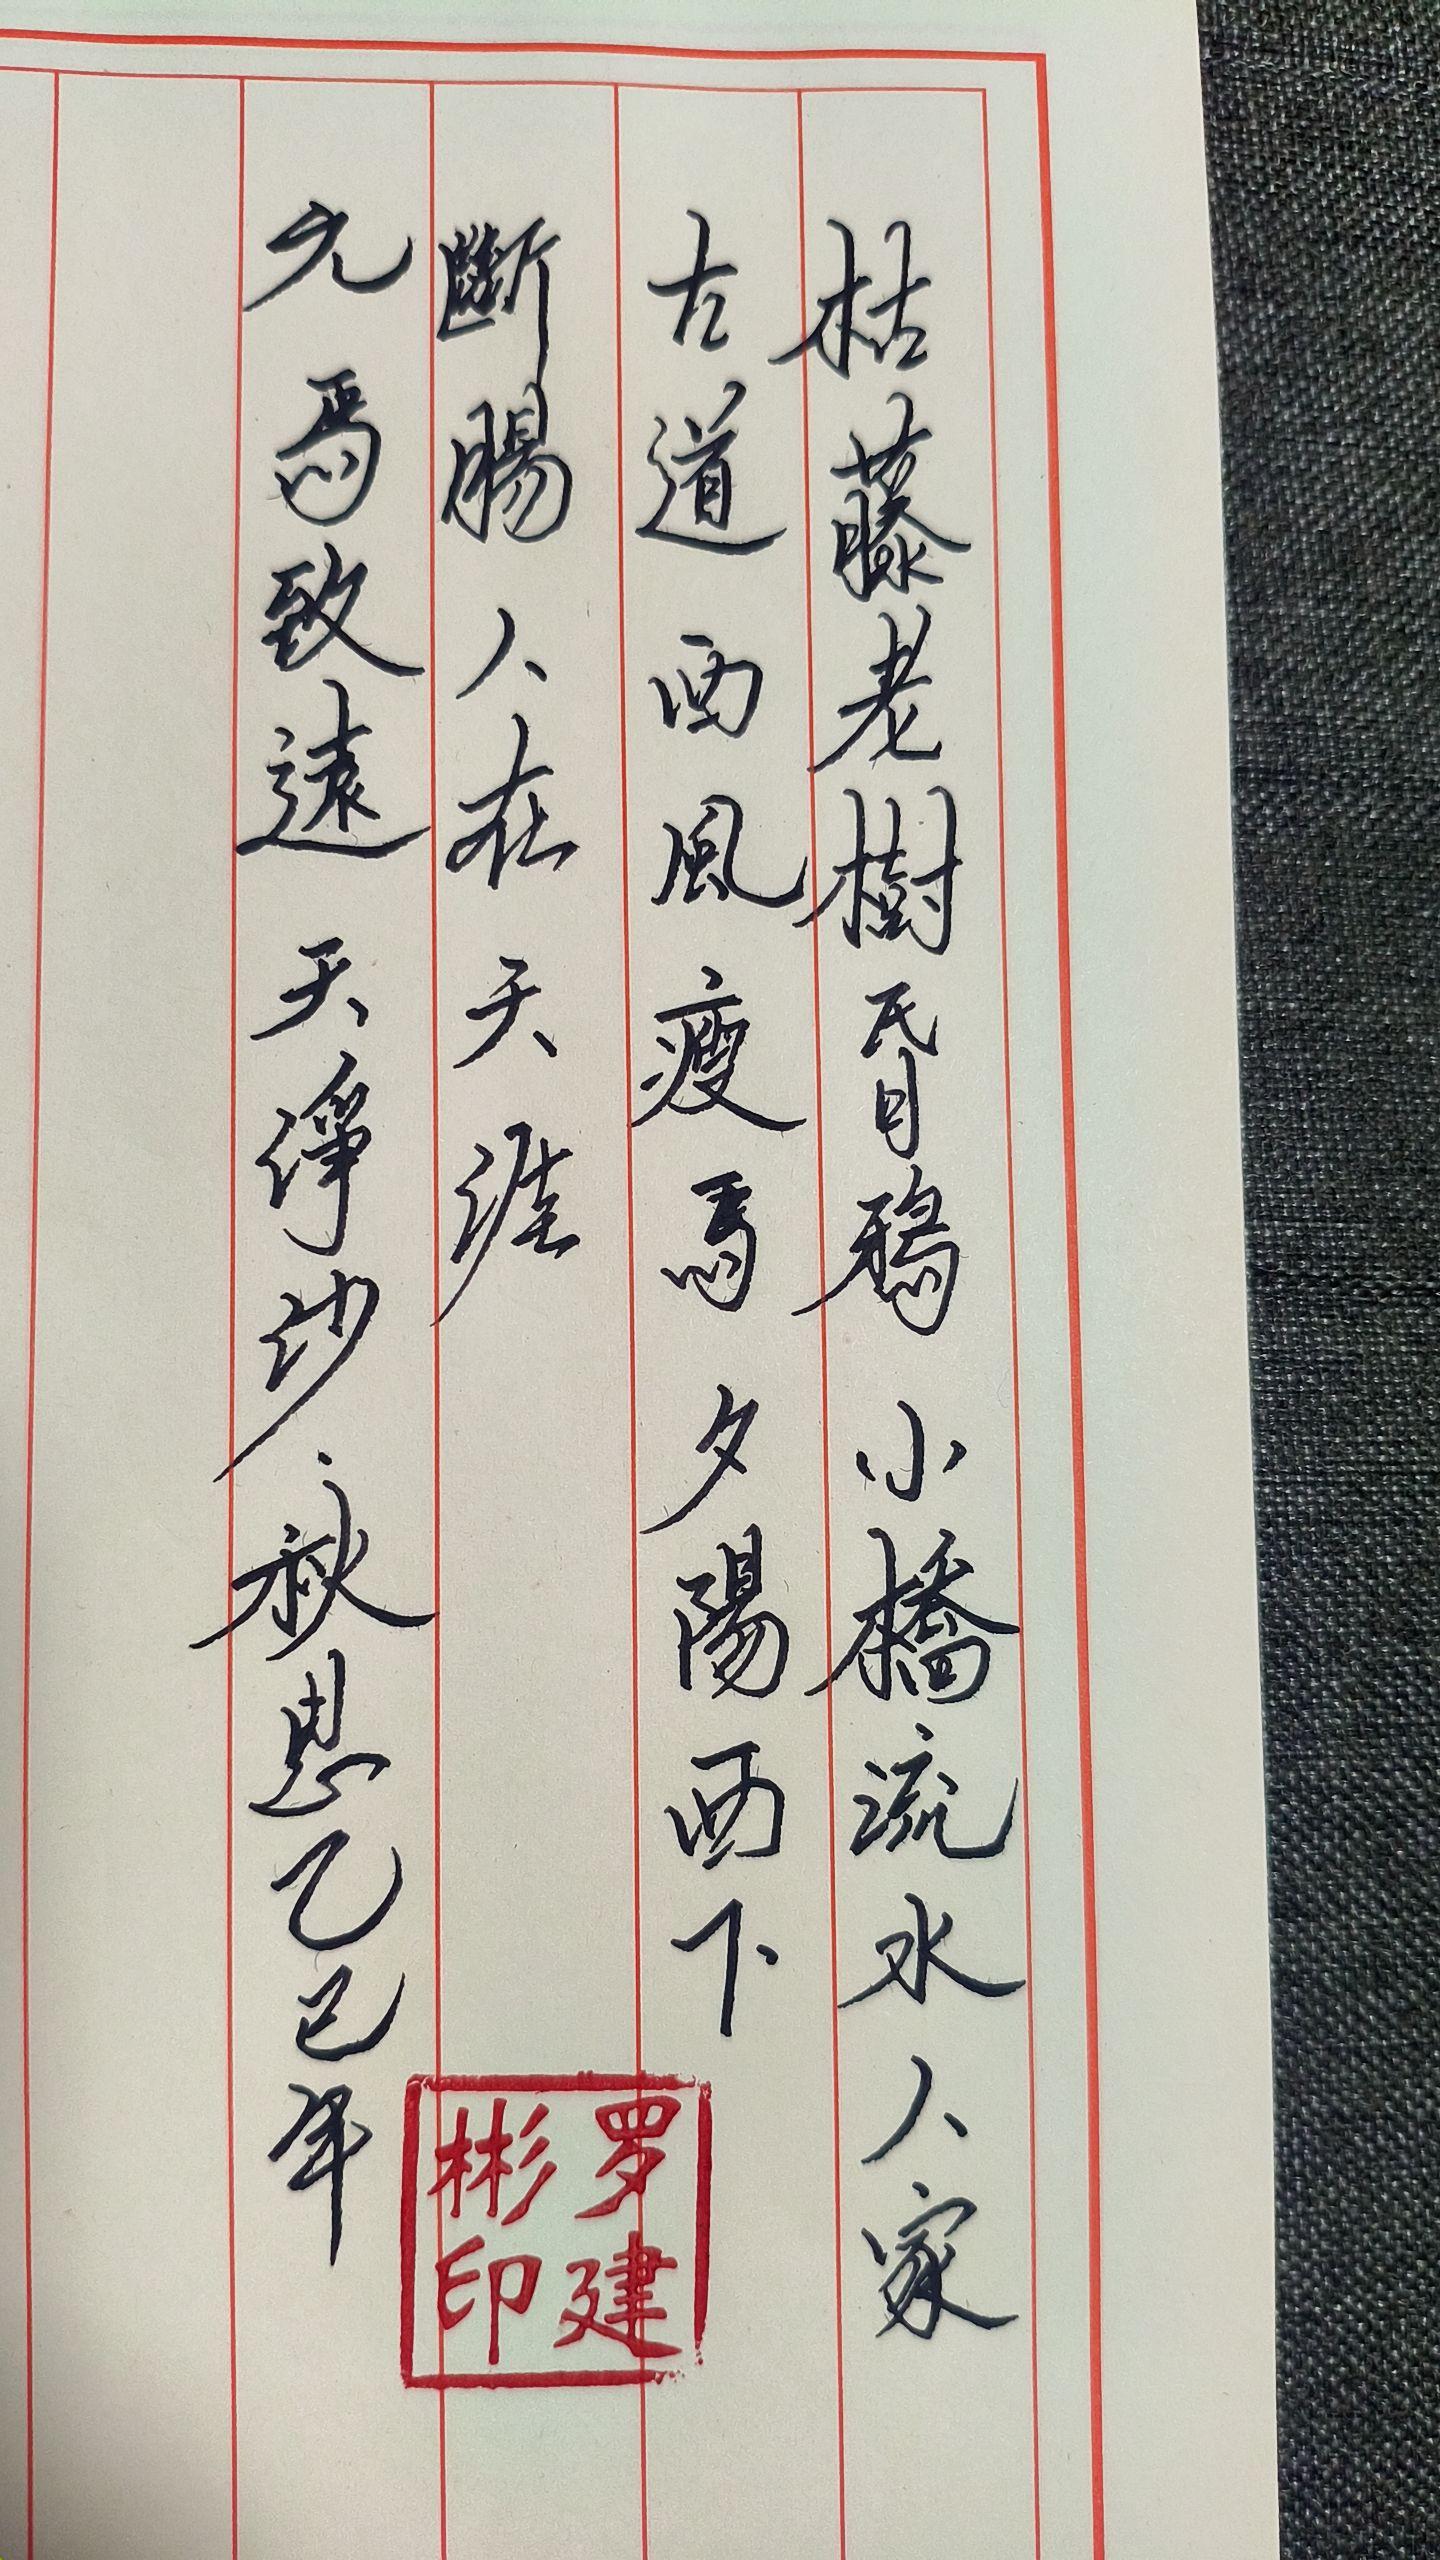 枯藤老樹昏鴉小橋流水人家
古道西風瘦馬夕陽西下
斷腸人在天涯
元馬致遠天淨沙·秋思乙巳年
罗建
彬印